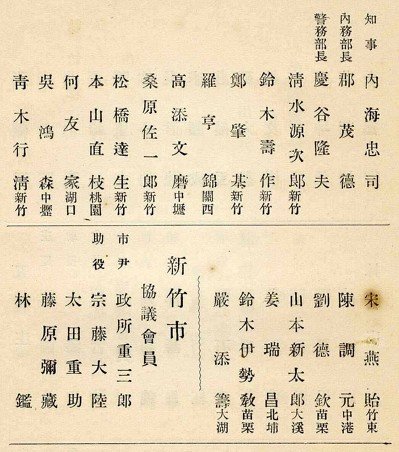 知事 內海忠司
內務部長 郡茂德
警務部長 慶谷隆夫
淸水源次郞 新竹
鈴木壽作 新竹
鄭肇基 新竹
羅享錦 關西
高添文磨 中壢
桑原佐一郞 新竹
松橋達生 新竹
本山直枝 桃園
何友家 湖口
吳鴻森 中壢
靑木行淸 新竹
宋燕貽 竹東
陳調元 中港
劉德欽 苗栗
山本新太郞 大溪
姜瑞昌 北埔
鈴木伊勢敎 苗栗
嚴添籌 大湖
新竹市
協議會員
市尹 政所重三郞
助役 宗藤大陸
太田重助
藤原彌藏
林鑑